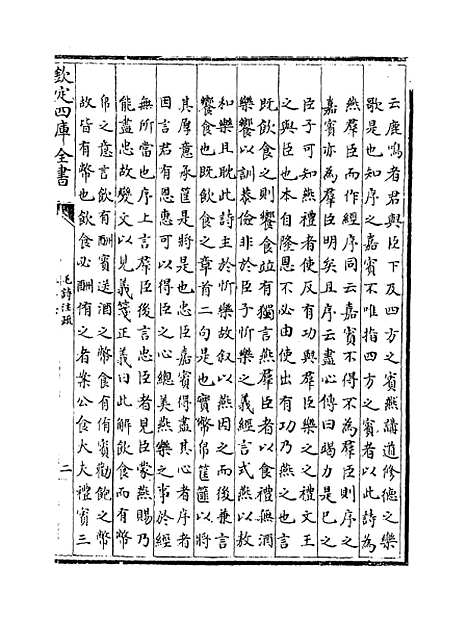 云鹿鳴者君與臣下及四方之賓燕講道修德之樂
歌是也知序之嘉賓不唯指四方之賓者以此詩為
燕羣臣而作經序同云嘉賓不得不為羣臣則序之
嘉賓亦為羣臣明矣且序云盡心傳曰竭力是已之
臣子可知燕禮者使反有功與羣臣樂之之禮文王
之與臣也本自隆恩不必由使出有功乃燕之也言
既飲食之則饗食竝有獨言燕羣臣者以食禮無酒
樂饗以訓恭儉非於臣子忻樂之義經言式燕以敖
和樂且耽此詩主於忻樂故叙以燕因之而後兼言
饗食也既飲食之章首二句是也實幣帛筐篚以將
其厚意承筐是將是也忠臣嘉賓得盡其心者序者
因言君有恩惠可以得臣之心總美燕樂之事於經
無所當也序上言羣臣後言忠臣者見臣蒙燕賜乃
能盡忠故變文以見義箋正義曰此解飲食而有幣
帛之意言飲有酬賓送酒之幣食有侑賓勸飽之幣
故皆有幣也飲食必酬侑之者案公食大夫禮賓三
欽定四庫全書
毛詩注疏
二